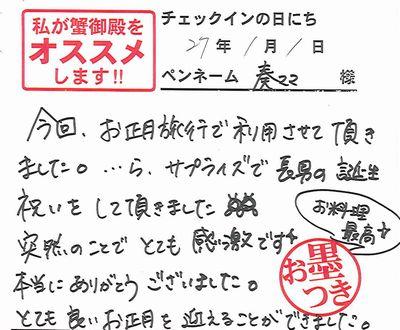 私が蟹御殿を
オススメ
します!!
チェックインの日にち
27年 1月 1日
ペンネーム 奏ママ 様
今回、お正月旅行で利用させて頂き
ました。…ら、サプライズで長男の誕生
祝いをして頂きました
突然のことでとても感激です
本当にありがとうございました。
とても良いお正月を迎えることができました。
お料理
最高
お墨
つき